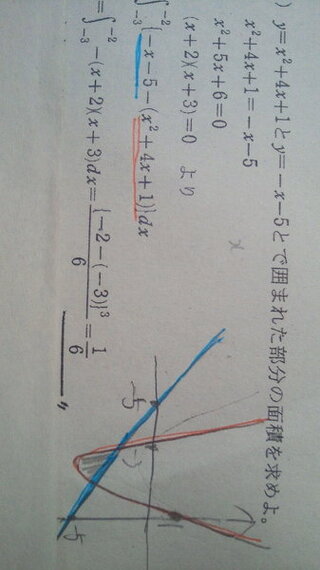 ) y=x²+4x+1とy=-x-5とで囲まれた部分の面積を求めよ。
x²+4x+1=-x-5
x²+5x+6=0
(x+2)(x+3)=0 より
x
∫₋₃⁻²{-x-5-(x²+4x+1)}dx
=∫₋₃⁻²-(x+2)(x+3)dx={-2-(-3)}³/6=1/6
-5
1
-5